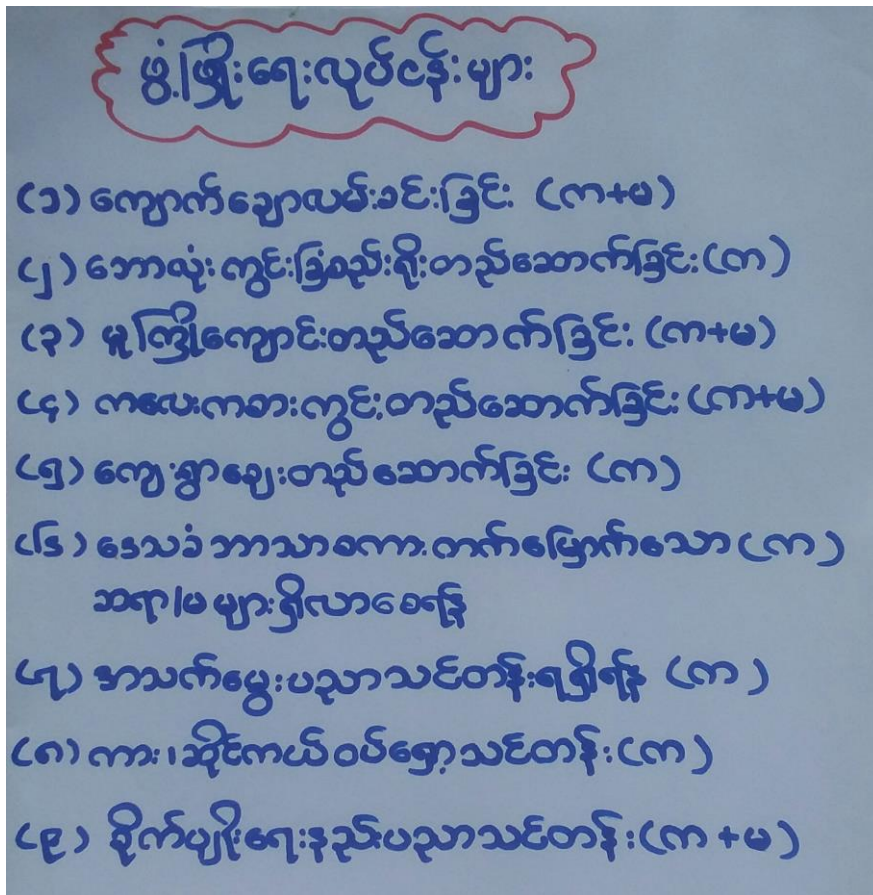 ဖွံ့ဖြိုးရေးလုပ်ငန်းများ
(၁) ကျောက်ချောလမ်းခင်းခြင်း (က+မ)
(၂) ဘောလုံးကွင်းခြံစည်းရိုးတည်ဆောက်ခြင်း (က)
(၃) မူကြိုကျောင်းတည်ဆောက်ခြင်း (က+မ)
(၄) ကလေးကစားကွင်းတည်ဆောက်ခြင်း (က+မ)
(၅) ကျေးရွာဈေးတည်ဆောက်ခြင်း (က)
(၆) ဒေသခံဘာသာစကားတတ်မြောက်သော (က)
ဆရာ/မများရှိလာစေရန်
(၇) အသက်မွေးပညာသင်တန်းရရှိရန် (က)
(၈) ကား၊ဆိုင်ကယ်ဝပ်ရှော့သင်တန်း (က)
(၉) စိုက်ပျိုးရေးနည်းပညာသင်တန်း (က+မ)